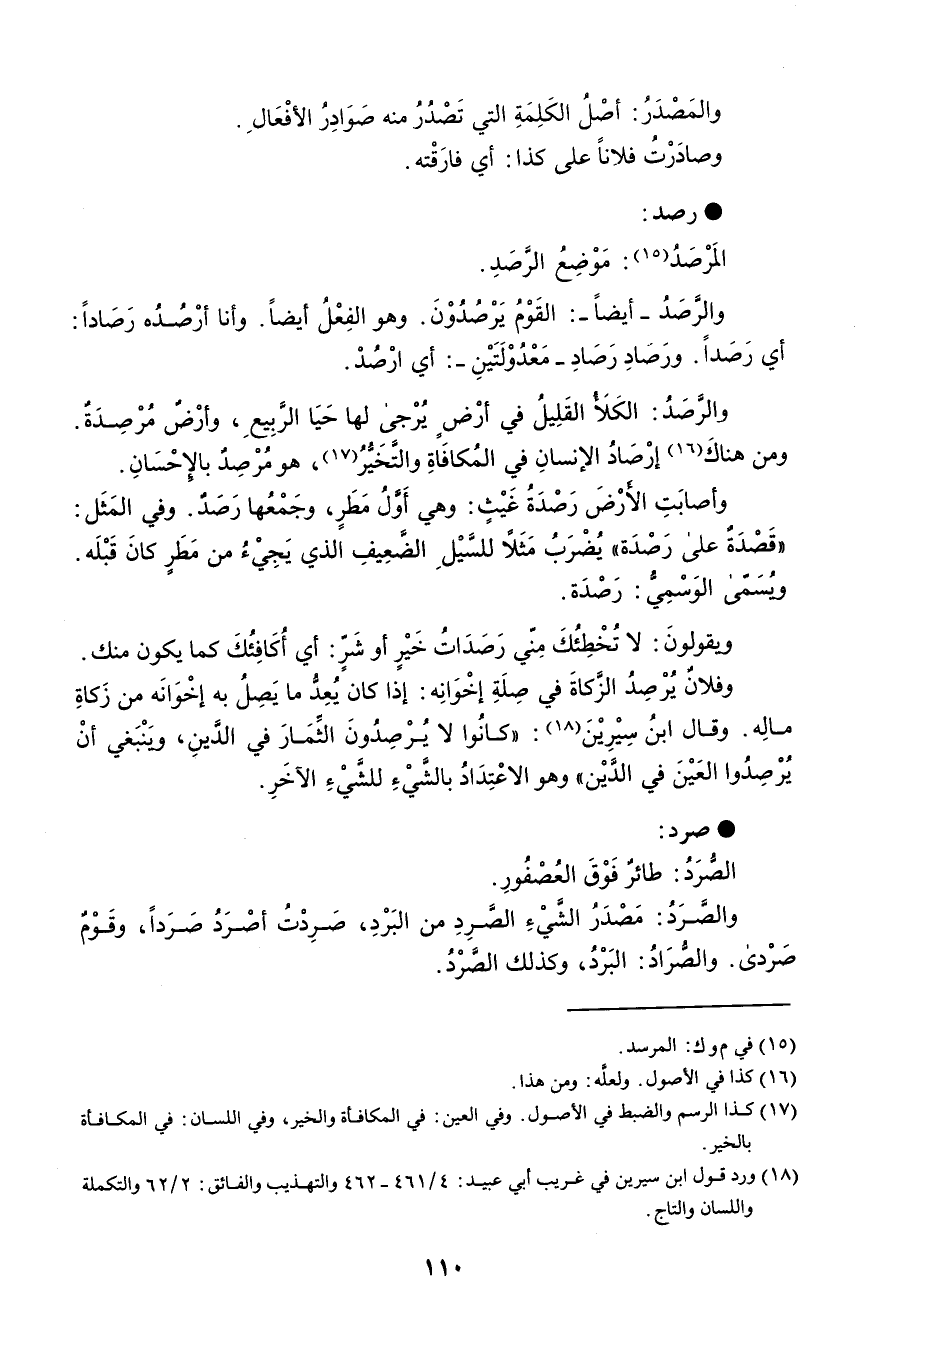 والمَصْدَرُ: أصْلُ الكَلِمَةِ التي تَصْدُرُ منه صَوَادِرُ الأفْعَالِ.
وصادَرْتُ فلاناً على كذا: أي فارَقْته.
● رصد:
المَرْصَدُ(١٥): مَوْضِعُ الرَّصَدِ.
والرَّصَدُ ـ أيضاً ـ: القَوْمُ يَرْصُدُوْنَ. وهو الفِعْلُ أيضاً. وأنا أرْصُـدُه رَصَاداً:
أي رَصَداً. ورَصَادِ رَصَادِ ـ مَعْدُوْلَتَيْنِ ـ: أي ارْصُدْ.
والرَّصَدُ: الكَلَأُ القَلِيلُ في أرْضٍ يُرْجىٰ لها حَيَا الرَّبِيعِ، وأرْضٌ مُرْصِـدَةٌ.
ومن هناكَ(١٦) إرْصَادُ الإنسانِ في المُكافَاةِ والتَّخَيُّرُ(١٧)، هو مُرْصِدٌ بالإِحْسَانِ.
وأصابَتِ الأَرْضَ رَصْدَةُ غَيْثٍ: وهي أوَّلُ مَطَرٍ، وجَمْعُها رَصَدٌ. وفي المَثَل:
«قَصْدَةٌ علىٰ رَصْدَة» يُضْرَبُ مَثَلًا للسَّيْلِ الضَّعِيفِ الذي يَجِيْءُ من مَطَرٍ كانَ قَبْلَه.
ويُسَمّىٰ الوَسْمِيُّ: رَصْدَة.
ويقولونَ: لا تُخْطِئُكَ مِنّي رَصَدَاتُ خَيْرٍ أو شَرٍّ: أي أُكَافِئُكَ كما يكون منك.
وفلانٌ يُرْصِدُ الزَّكاةَ في صِلَةِ إخْوَانِه: إذا كان يُعِدُّ ما يَصِلُ به إخْوَانَه من زَكاةِ
مـالِه. وقـال ابنُ سِيْرِيْنَ(١٨): «كـانُوا لا يُـرْصِدُونَ الثِّمَارَ في الدَّينِ، ويَنْبَغي أنْ
يُرْصِدُوا العَيْنَ في الدَّيْن» وهو الاعْتِدَادُ بالشَّيْءِ للشَّيْءِ الآخَرِ.
● صرد:
الصُّرَدُ: طائرٌ فَوْقَ العُصْفُورِ.
والصَّـرَدُ: مَصْدَرُ الشَّيْءِ الصَّـرِدِ من البَرْدِ، صَـرِدْتُ أصْـرَدُ صَـرَداً، وقَـوْمٌ
صَرْدىٰ. والصُّرَادُ: البَرْدُ، وكذلك الصَّرْدُ.
(١٥) في م و ك: المرسد.
(١٦) كذا في الأصول. ولعلَّه: ومن هذا.
(١٧) كـذا الرسم والضبط في الأصـول. وفي العين: في المكافـأة والخير، وفي اللسان: في المكـافـأة
بالخير.
(١٨) ورد قـول ابن سيرين في غـريب أبي عبيـد: ٤٦١/٤ ـ ٤٦٢ والتهـذيب والفـائق: ٦٢/٢ والتكملة
واللسان والتاج.
١١٠